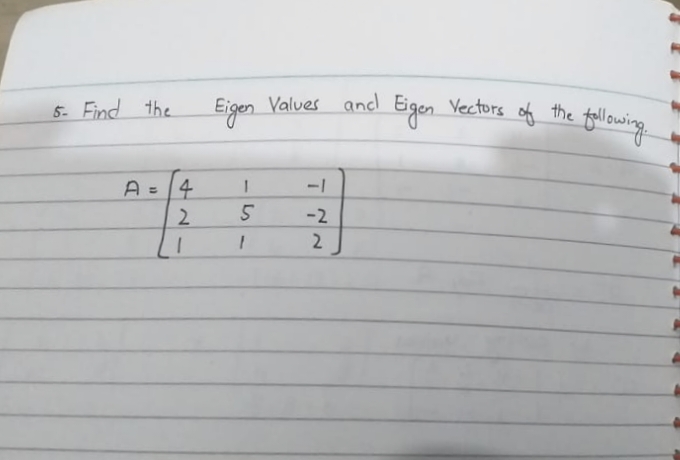 5- Find the Eigen Values and Eigen Vectors of the following.
A = [4 1 -1
2 5 -2
1 1 2]